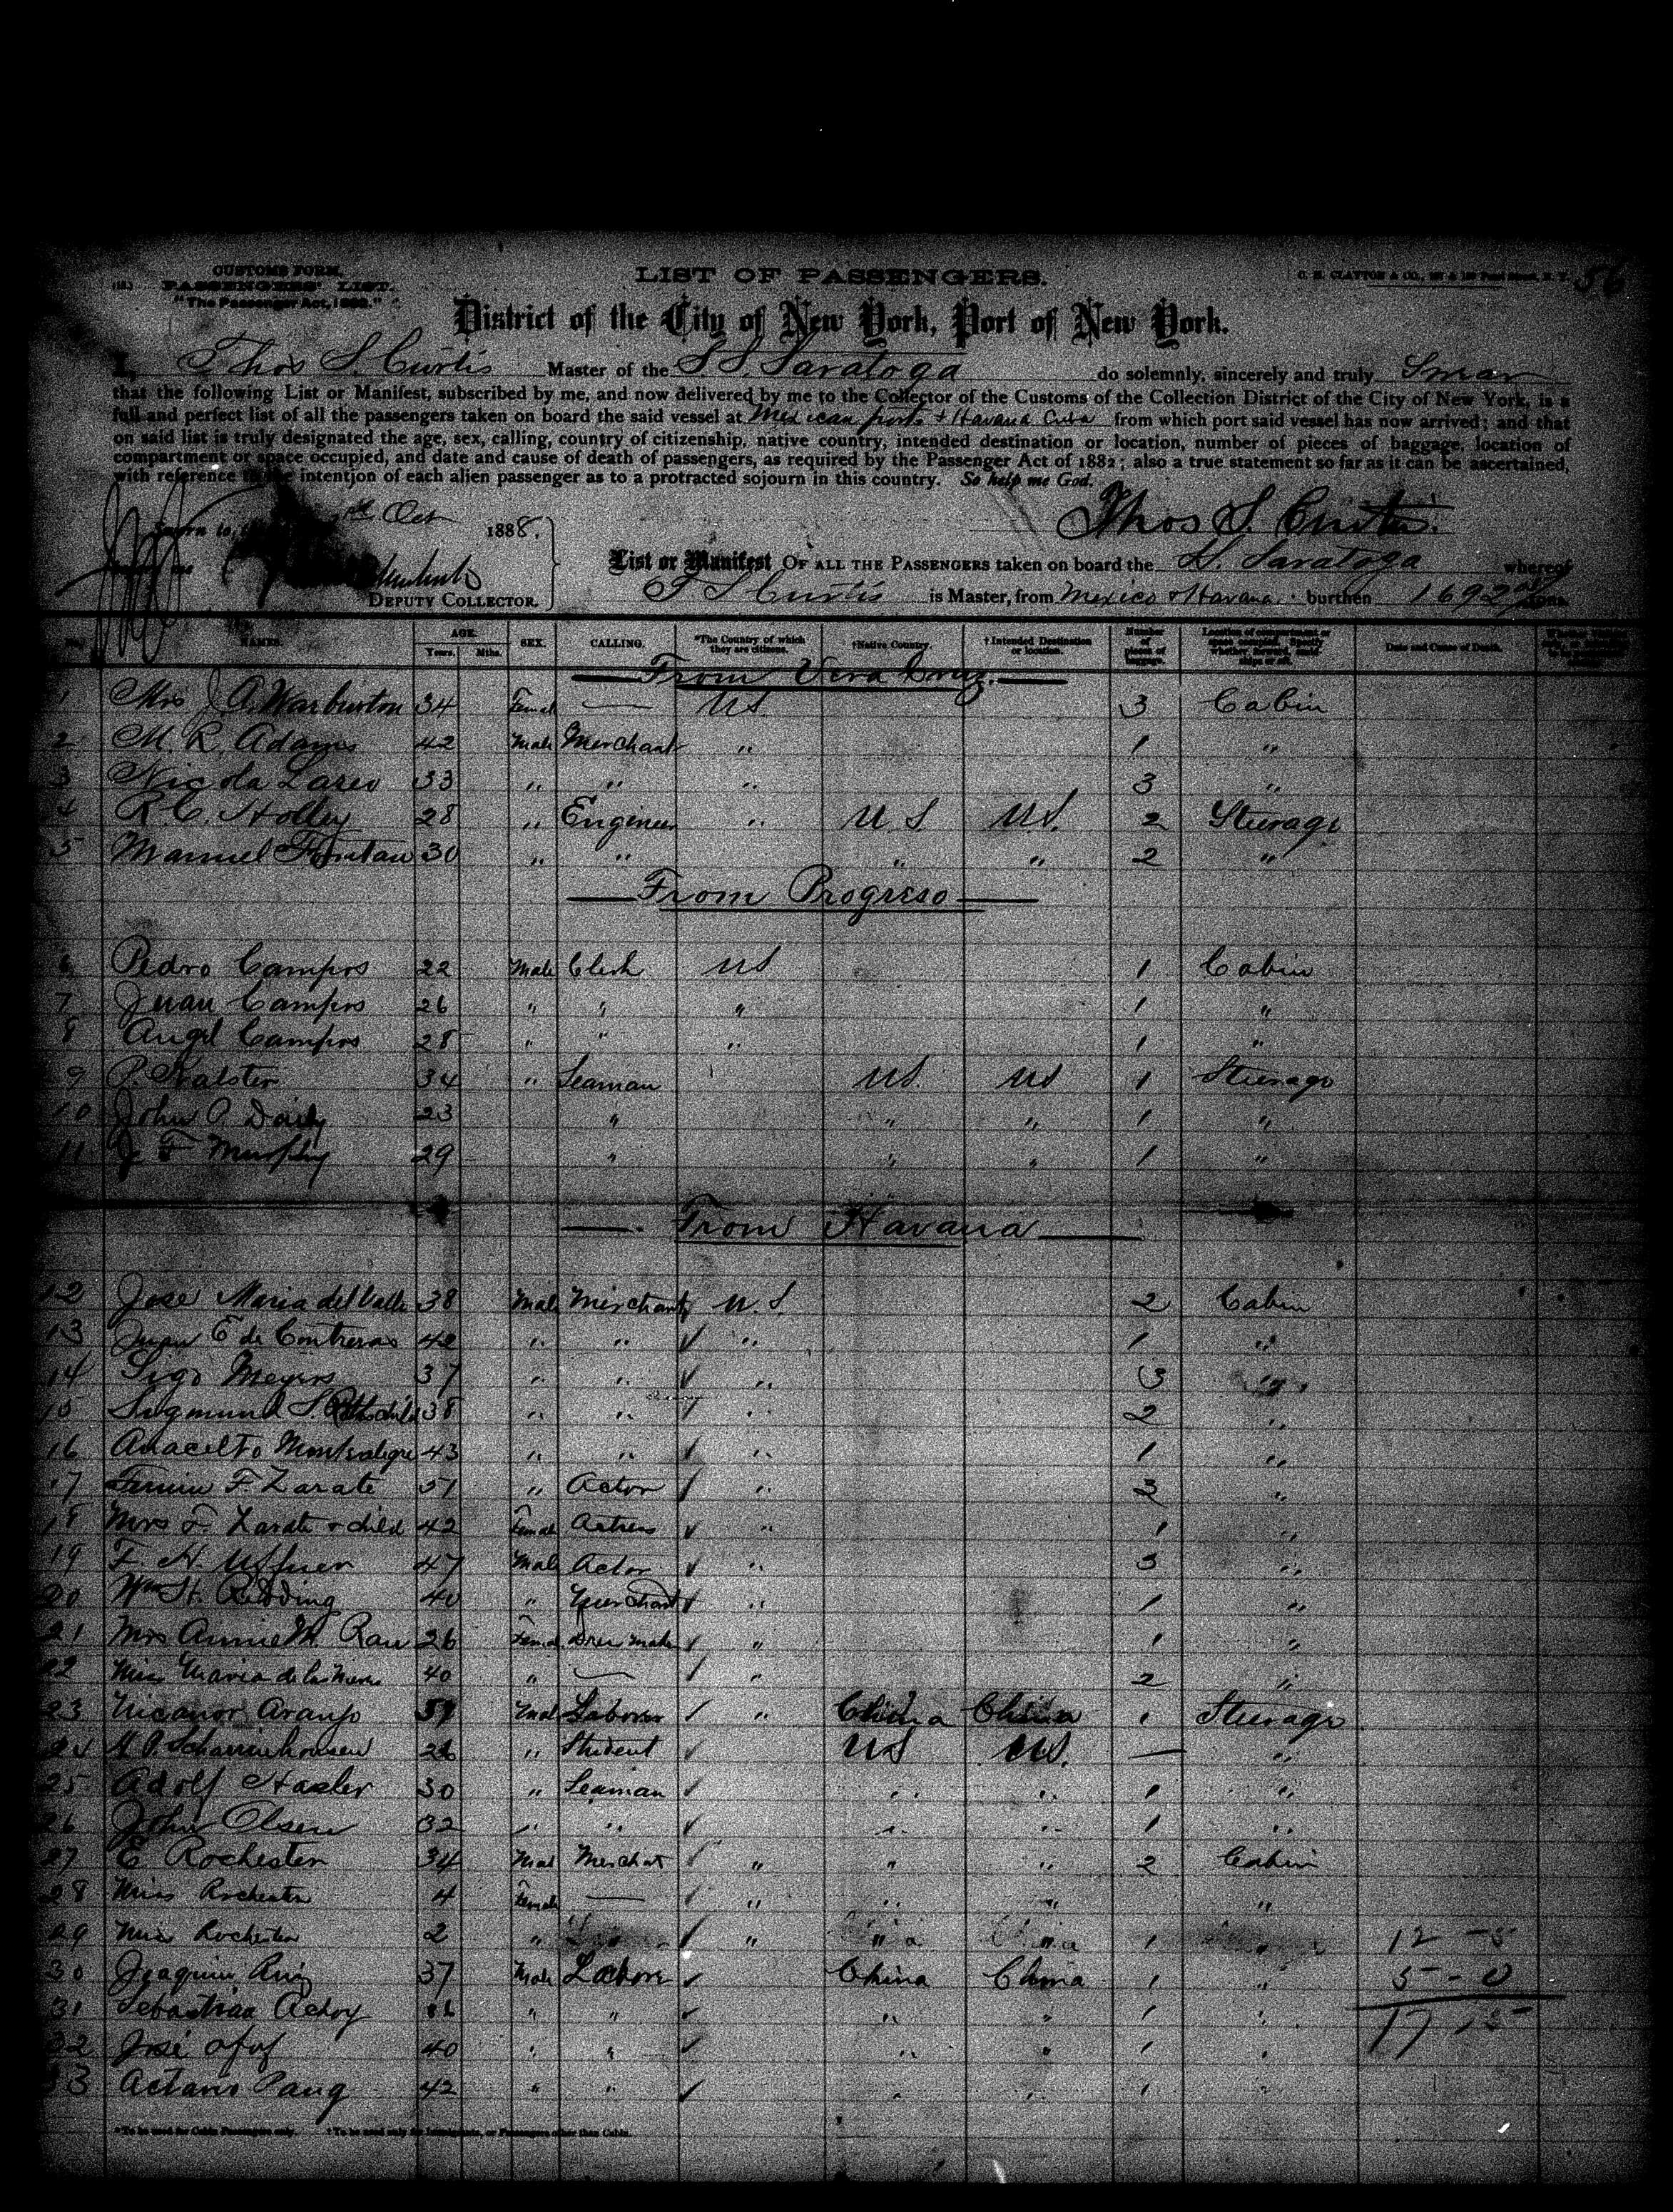 CUSTOMS FORM.
PASSENGERS' LIST.
"The Passenger Act, 1882."
LIST OF PASSENGERS.
C. H. CLAYTON & CO.,
56
District of the City of New York, Port of New York.
I, Thos S. Curtis Master of the S.S. Saratoga do solemnly, sincerely and truly Swear
that the following List or Manifest, subscribed by me, and now delivered by me to the Collector of the Customs of the Collection District of the City of New York, is a
full and perfect list of all the passengers taken on board the said vessel at Mexican ports & Havana Cuba from which port said vessel has now arrived; and that
on said list is truly designated the age, sex, calling, country of citizenship, native country, intended destination or location, number of pieces of baggage, location of
compartment or space occupied, and date and cause of death of passengers, as required by the Passenger Act of 1882; also a true statement so far as it can be ascertained,
with reference to the intention of each alien passenger as to a protracted sojourn in this country. So help me God.
Sworn to Oct 1888.
Thos S. Curtis.
List or Manifest OF ALL THE PASSENGERS taken on board the S. Saratoga whereof
DEPUTY COLLECTOR.
T S Curtis is Master, from Mexico & Havana. burthen 1692 tons.
NAMES. AGE. Years. Mths. SEX. CALLING. *The Country of which they are citizens. †Native Country. †Intended Destination or location. Number of pieces of baggage. Date and Cause of Death.
From Vera Cruz.
1 Mrs J A. Warburton 34 Femal — US 3 Cabin
2 M. R. Adams 42 Male Merchant " 1 "
3 Nicola Lares 33 " " " 3 "
4 R. C. Holley 28 " Engineer " U S US. 2 Steerage
5 Manuel 30 " " " " 2 "
From Progreso
6 Pedro Campos 22 Male Clerk US 1 Cabin
7 Juan Campos 26 " " " 1 "
8 Angel Campos 28 " " " 1 "
9 P. 34 " Seaman US US 1 Steerage
10 John P. Daily 23 " " " 1 "
11 J. F Murphy 29 " " " 1 "
From Havana
12 Jose Maria del Valle 38 Male Merchant U.S. 2 Cabin
13 Juan E de Contreras 42 " " " 1 "
14 Sigo Meyers 37 " " " 3 "
15 Sigmund S. Rothschild 38 " " " 2 "
16 Anacelto 43 " " " 1 "
17 Fermin F Zarate 51 " Actor " 3 "
18 Mrs F. Zarate & child 42 Female Actress " 1 "
19 F. H. Uffner 47 Male Actor " 3 "
20 Wm H. Redding 40 " Merchant " 1 "
21 Mrs Annie M. Rau 26 Femal Dress maker " 1 "
22 Miss Maria de las Nieves 40 " — " 2 "
23 Nicanor Araujo 59 Mal Laborer " China China 1 Steerage
24 26 " Student US US. — "
25 Adolf Hasler 30 " Seaman " " 1 "
26 John Olsen 32 " " " " 1 "
27 E Rochester 34 Mal Merchat " " " 2 Cabin
28 Miss Rochester 4 Female — " " " "
29 Miss Rochester 2 " " " " 1 " 12 - 5
30 Joaquin Ruiz 37 Male Labore China China 1 " 5 - 0
31 Sebastian " " " " 1 " 17 - 5
32 José 40 " " " " 1 "
33 42 " " " 1 "
*To be used for Cabin Passengers only. †To be used only for Immigrants, or Passengers other than Cabin.